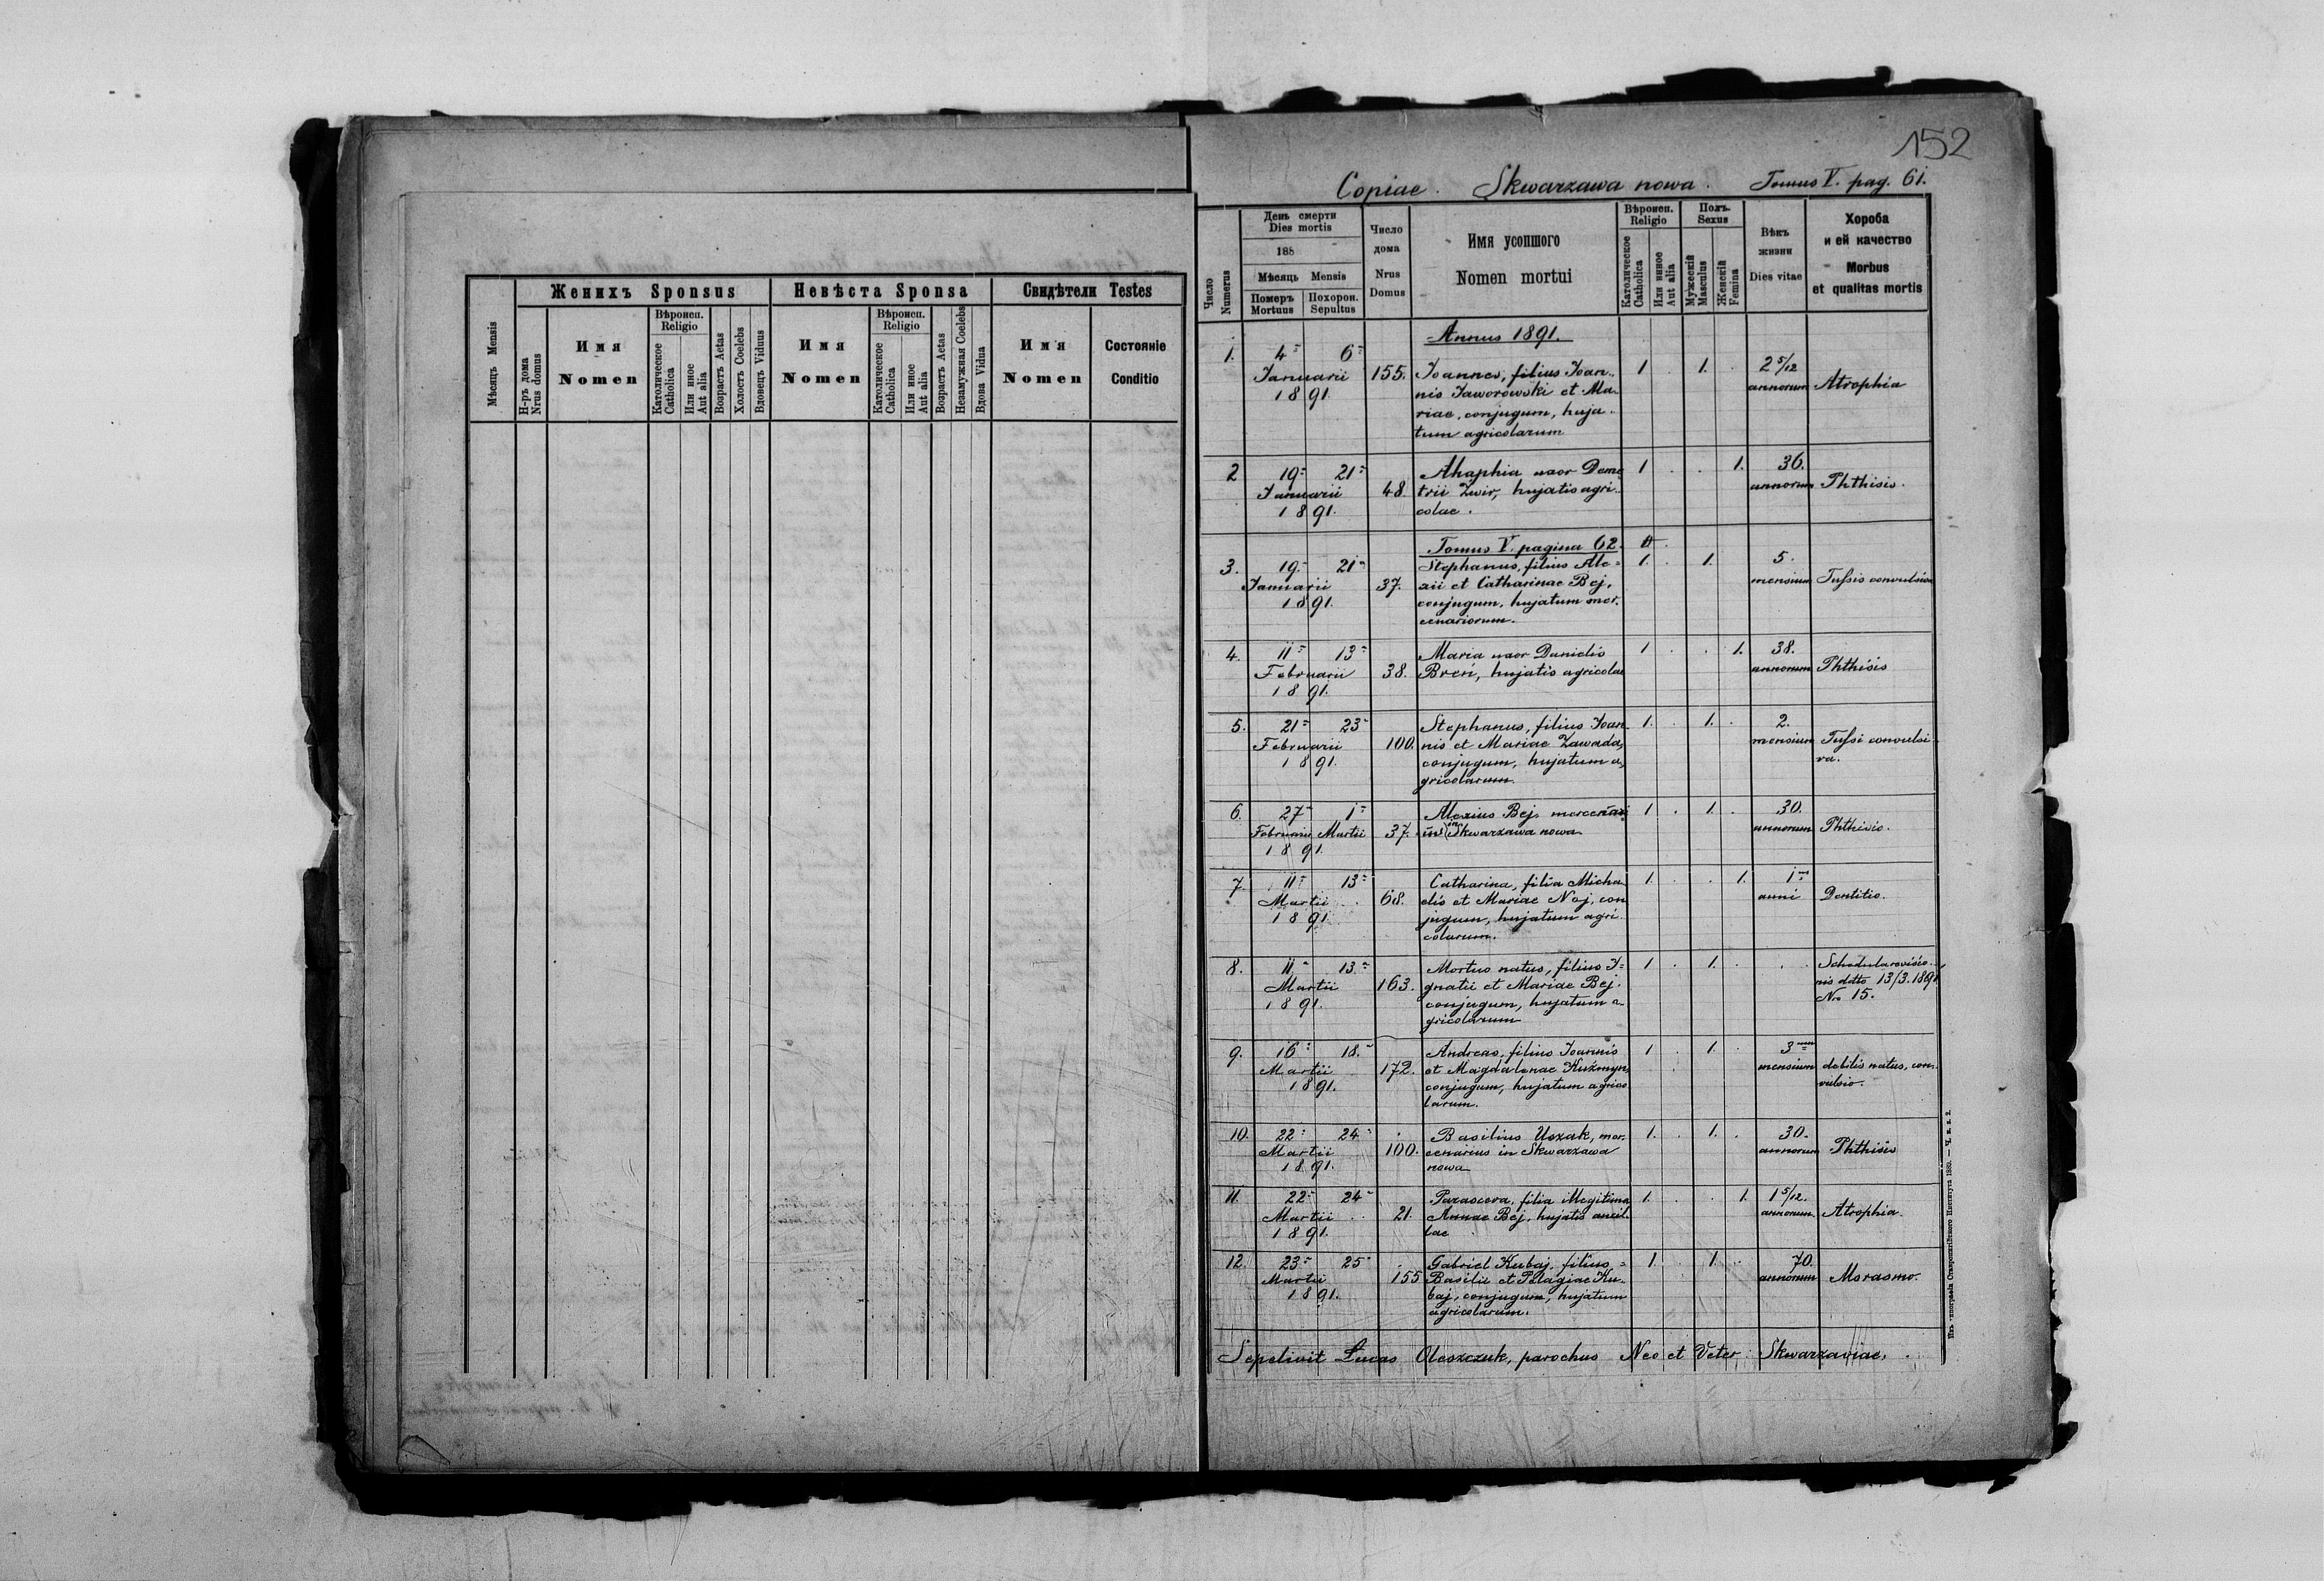 152
Copiae. Skwarzawa nowa. Tomus V. pag. 61.
Мѣсяць Mensis
Женихъ Sponsus
Невѣста Sponsa
Свидѣтели Testes
Н-ръ дома Nrus domus
Имя Nomen
Вѣроисп. Religio
Католическое Catholica
Или иное Aut alia
Возрастъ Aetas
Холостъ Coelebs
Вдовецъ Viduus
Имя Nomen
Вѣроисп. Religio
Католическое Catholica
Или иное Aut alia
Возрастъ Aetas
Незамужная Coelebs
Вдова Vidua
Имя Nomen
Состояніе Conditio
Число Numerus
День смерти Dies mortis
188
Мѣсяць Mensis
Померъ Mortuus
Похорон. Sepultus
Число дома Nrus Domus
Имя усопшого Nomen mortui
Вѣроисп. Religio
Католическое Catholica
Или инное Aut alia
Полъ. Sexus
Мужескій Masculus
Женскій Femina
Вѣкъ жизни Dies vitae
Хороба и ей качество Morbus et qualitas mortis
Annus 1891.
1. 4 6 1 . 1. 2 5/12
Januarii 155. Joannes, filius Joan- annorum Atrophia
1891 nis Jaworowski et Ma-
riae, conjugum, huja-
tum agricolarum
2 19 21 Ahaphia uxor Deme 1 . . 1. 36.
Januarii 48 trii Zwir, hujatis agri- annorum Phthisis.
1891. colae.
Tomus V. pagina 62.
3. 19. 21 Stephanus, filius Ale= 1. . 1. 5.
Januarii 37. xii et Catharinae Bej, mensium Tussis convulsiva
1891. conjugum, hujatum mer-
cenariorum.
4. 11 13 Maria uxor Danielis 1 . . 1. 38.
Februarii 38. Breń, hujatis agricolae annorum Phthisis
1891.
5. 21 23 Stephanus, filius Joan- 1. . 1. . 2.
Februarii 100. nis et Mariae Zawada, mensium Tussi convulsi-
1891. conjugum, hujatum a- va.
gricolarum.
6. 27 1 Alexius Bej, mercenari 1 . 1. . 30.
Februarii Martii 37. in Skwarzawa nowa annorum Phthisis.
1891.
7. 11 13 Catharina, filia Micha 1. . . 1. 1
Martii 68. elis et Mariae Noj, con anni Dentitio.
1891 jugum, hujatum agri-
colarum.
8. 11 13. Mortuo natus, filius I= 1 . 1. . . .
Martii 163. gnatii et Mariae Bej,
1891. conjugum, hujatum a- nis ddto 13/3. 1891
gricolarum Nro 15.
9. 16 18. Andreas, filius Joannis 1 . 1. . 3
Martii 172. et Magdalenae Kuźmyn, mensium debilis natus, con-
1891. conjugum, hujatum agrico vulsio.
larum.
10. 22 24 Basilius Uszak, mer- 1. . 1. . 30.
Martii 100. cenarius in Skwarzawa annorum Phthisis
1891. nowa
11. 22 24 Parasceva, filia illegitima 1. . . 1. 1 5/12.
Martii 21. Annae Bej, hujatis ancil- annorum Atrophia.
1891. lae
12. 23 25 Gabriel Kubaj, filius 1. . 1. . 70.
Martii 155 Basilii et Pelagiae Ku- annorum Marasmo.
1891. baj, conjugum, hujatum
agricolarum.
Sepelivit Lucas Oleszczuk, parochus Neo et Veter Skwarzaviae.
Изъ типографіи Ставропигійского Института 1889. — Ч. в. з. 2.